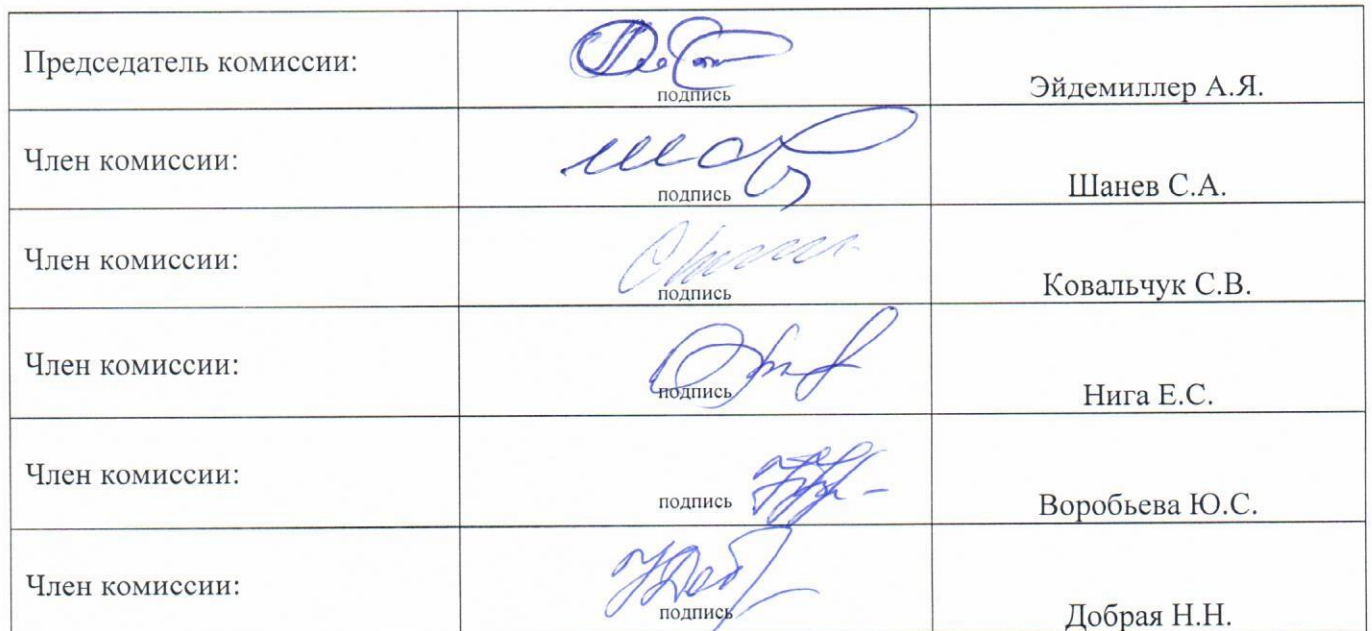 Председатель комиссии:
подпись
Эйдемиллер А.Я.
Член комиссии:
подпись
Шанев С.А.
Член комиссии:
подпись
Ковальчук С.В.
Член комиссии:
подпись
Нига Е.С.
Член комиссии:
подпись
Воробьева Ю.С.
Член комиссии:
подпись
Добрая Н.Н.